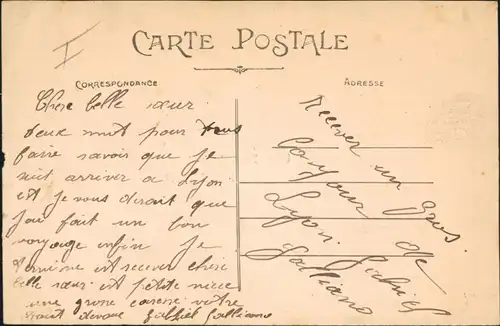 I
CARTE POSTALE
CORRESPONDANCE
ADRESSE
Chere belle sœur
deux mot pour vous
faire savoir que je
suit arriver a Lyon
et je vous dirait que
jai fait un bon
voyage enfin je
termine est recever chere
belle sœur est petite niece
une grosse caresse votre
tout devoue Gabriel Galliano
Recever un gros
bonjour de
Lyon Gabriel
Galliano